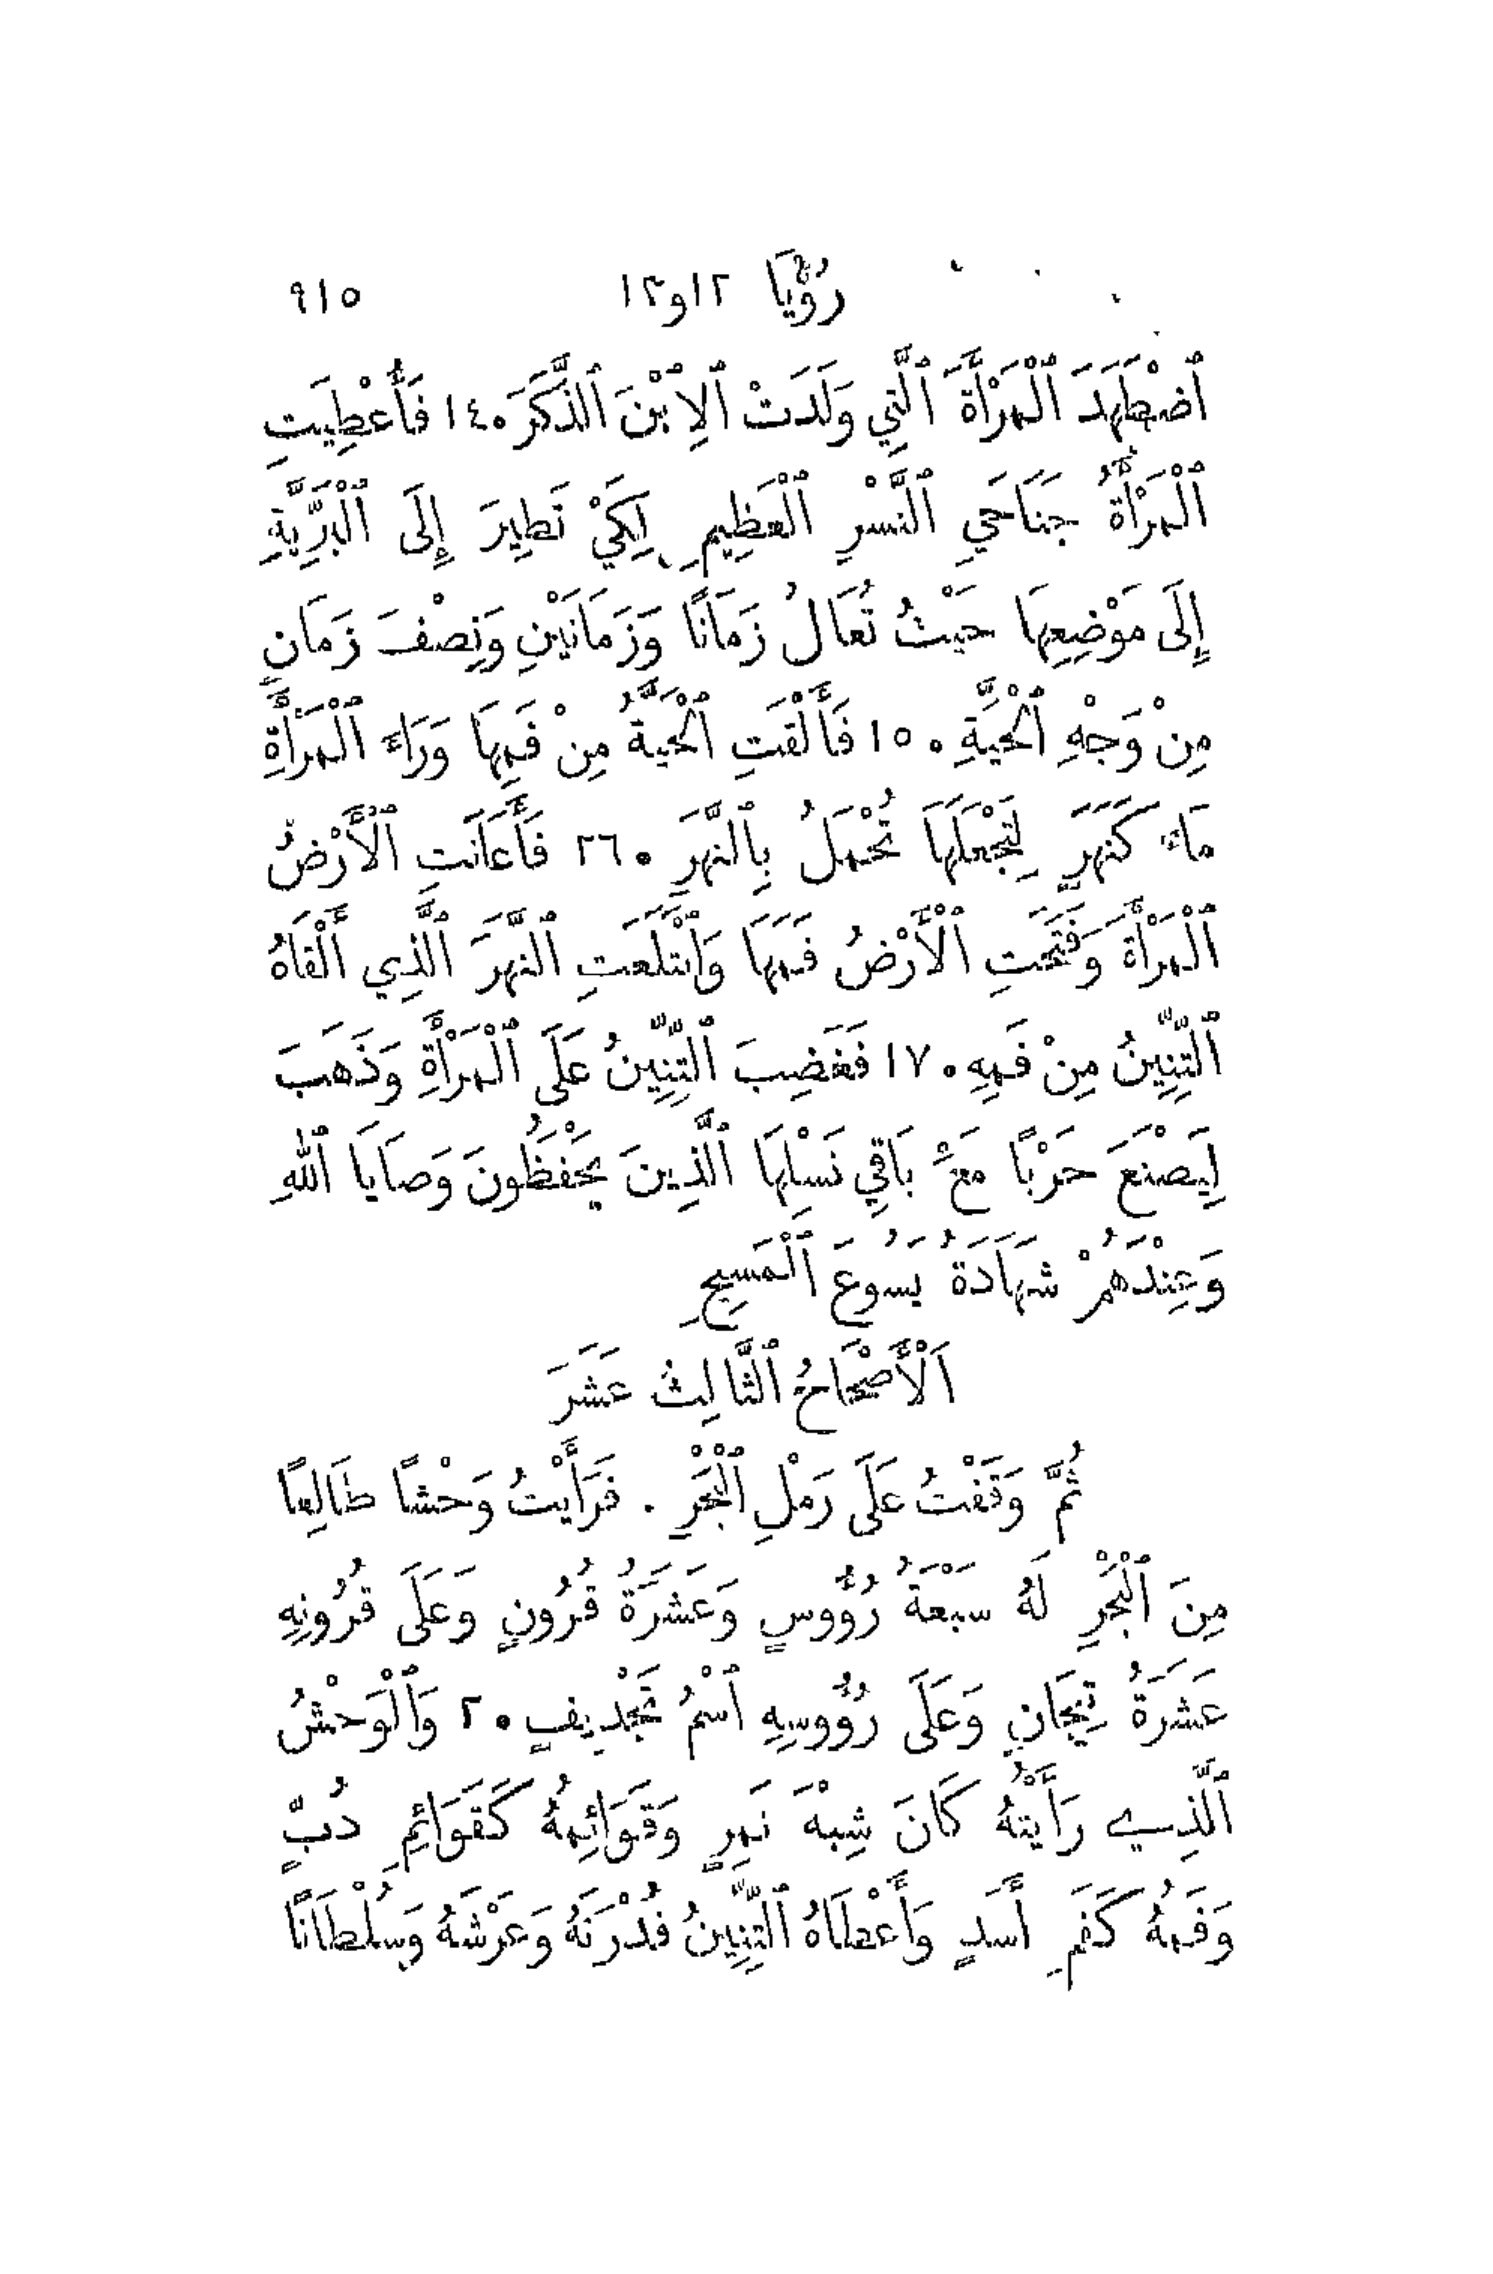 رُؤْيَا ١٢ و١٣ ٩١٥
ٱضْطَهَدَ ٱلْمَرْأَةَ ٱلَّتِي وَلَدَتْ ٱلِٱبْنَ ٱلذَّكَرَ ٠ ١٤ فَأُعْطِيَتِ
ٱلْمَرْأَةُ جَنَاحَيِ ٱلنَّسْرِ ٱلْعَظِيمِ لِكَيْ تَطِيرَ إِلَى ٱلْبَرِّيَّةِ
إِلَى مَوْضِعِهَا حَيْثُ تُعَالُ زَمَانًا وَزَمَانَيْنِ وَنِصْفَ زَمَانٍ
مِنْ وَجْهِ ٱلْحَيَّةِ ٠ ١٥ فَأَلْقَتِ ٱلْحَيَّةُ مِنْ فَمِهَا وَرَاءَ ٱلْمَرْأَةِ
مَاءً كَنَهَرٍ لِتَجْعَلَهَا تُحْمَلُ بِٱلنَّهَرِ ٠ ٢٦ فَأَعَانَتِ ٱلْأَرْضُ
ٱلْمَرْأَةَ وَفَتَحَتِ ٱلْأَرْضُ فَمَهَا وَٱبْتَلَعَتِ ٱلنَّهَرَ ٱلَّذِي أَلْقَاهُ
ٱلتِّنِّينُ مِنْ فَمِهِ ٠ ١٧ فَغَضِبَ ٱلتِّنِّينُ عَلَى ٱلْمَرْأَةِ وَذَهَبَ
لِيَصْنَعَ حَرْبًا مَعَ بَاقِي نَسْلِهَا ٱلَّذِينَ يَحْفَظُونَ وَصَايَا ٱللهِ
وَعِنْدَهُمْ شَهَادَةُ يَسُوعَ ٱلْمَسِيحِ
اَلْأَصْحَاحُ ٱلثَّالِثُ عَشَرَ
ثُمَّ وَقَفْتُ عَلَى رَمْلِ ٱلْبَحْرِ . فَرَأَيْتُ وَحْشًا طَالِعًا
مِنَ ٱلْبَحْرِ لَهُ سَبْعَةُ رُؤُوسٍ وَعَشَرَةُ قُرُونٍ وَعَلَى قُرُونِهِ
عَشَرَةُ تِيجَانٍ وَعَلَى رُؤُوسِهِ ٱسْمُ تَجْدِيفٍ ٠ ٢ وَٱلْوَحْشُ
ٱلَّذِي رَأَيْتُهُ كَانَ شِبْهَ نَمِرٍ وَقَوَائِمُهُ كَقَوَائِمِ دُبٍّ
وَفَمُهُ كَفَمِ أَسَدٍ وَأَعْطَاهُ ٱلتِّنِّينُ قُدْرَتَهُ وَعَرْشَهُ وَسُلْطَانًا